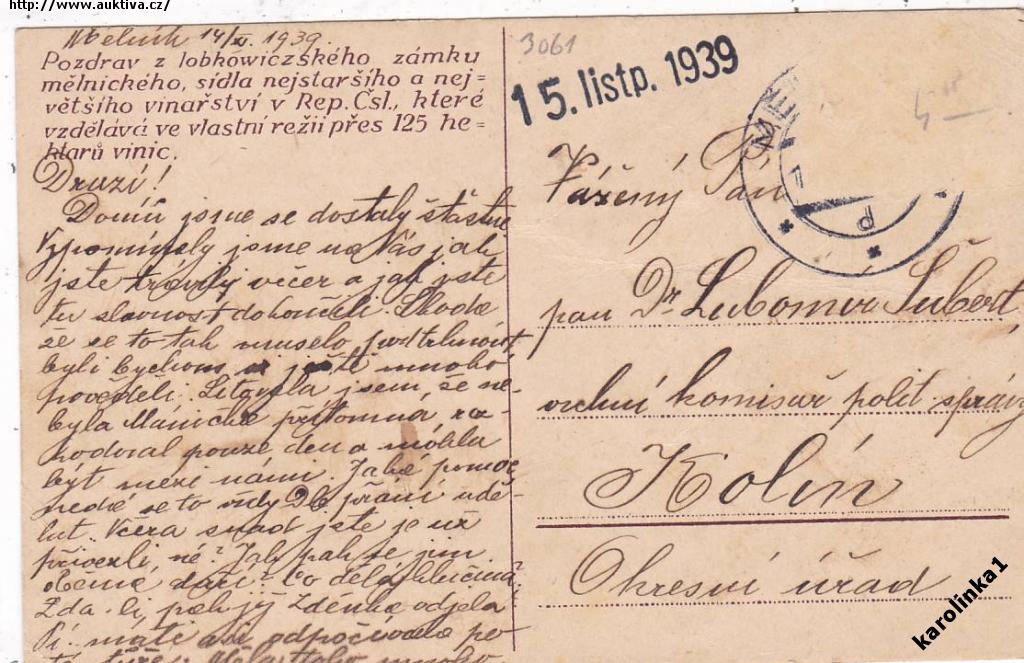 http://www.auktiva.cz/
Mělník 14/XI. 1939.
Pozdrav z lobkowiczského zámku
mělnického, sídla nejstaršího a nej=
většího vinařství v Rep. Čsl., které
vzdělává ve vlastní režii přes 125 he=
ktarů vinic.
Drazí!
Domů jsme se dostaly šťastně
Vzpomínaly jsme na Vás jak
jste trávily večer a jak jste
tu slavnost dokončili. Škoda
že se to tak muselo podtrhnout,
byli bychom si ještě mnoho
pověděli. Litovala jsem, že ne-
byla Mánička přítomná, roz-
hodoval pouze den a mohla
být mezi námi. Jaká pomoc
nedá se to vždy dle přání udě-
lat. Včera snad jste je už
přivezli, né? Jak pak se jim
daří? Co dělá
Zda-li pak již Zdenka odjela
Si. máti asi odpočívala po
3061
15. listp. 1939
MĚL
1
P
Vážený Pán
pan Dr. Lubomír Šubert,
vrchní komisař polit správy
Kolín
Okresní úřad
karolinka1